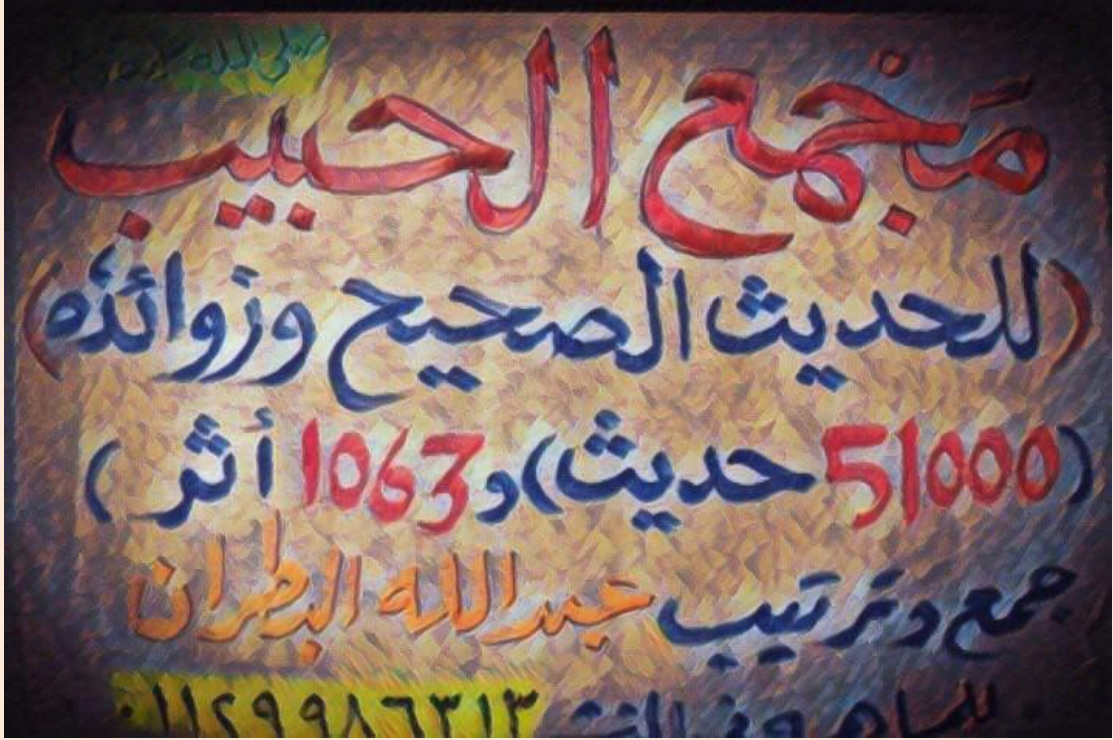 صلى الله عليه وسلم
مَجمع الحبيب
(للحديث الصحيح وزوائده)
(51000 حديث) و(1063 أثر)
جمع وترتيب عبدالله البطران
٠١١٢٩٩٨٦٣١٣